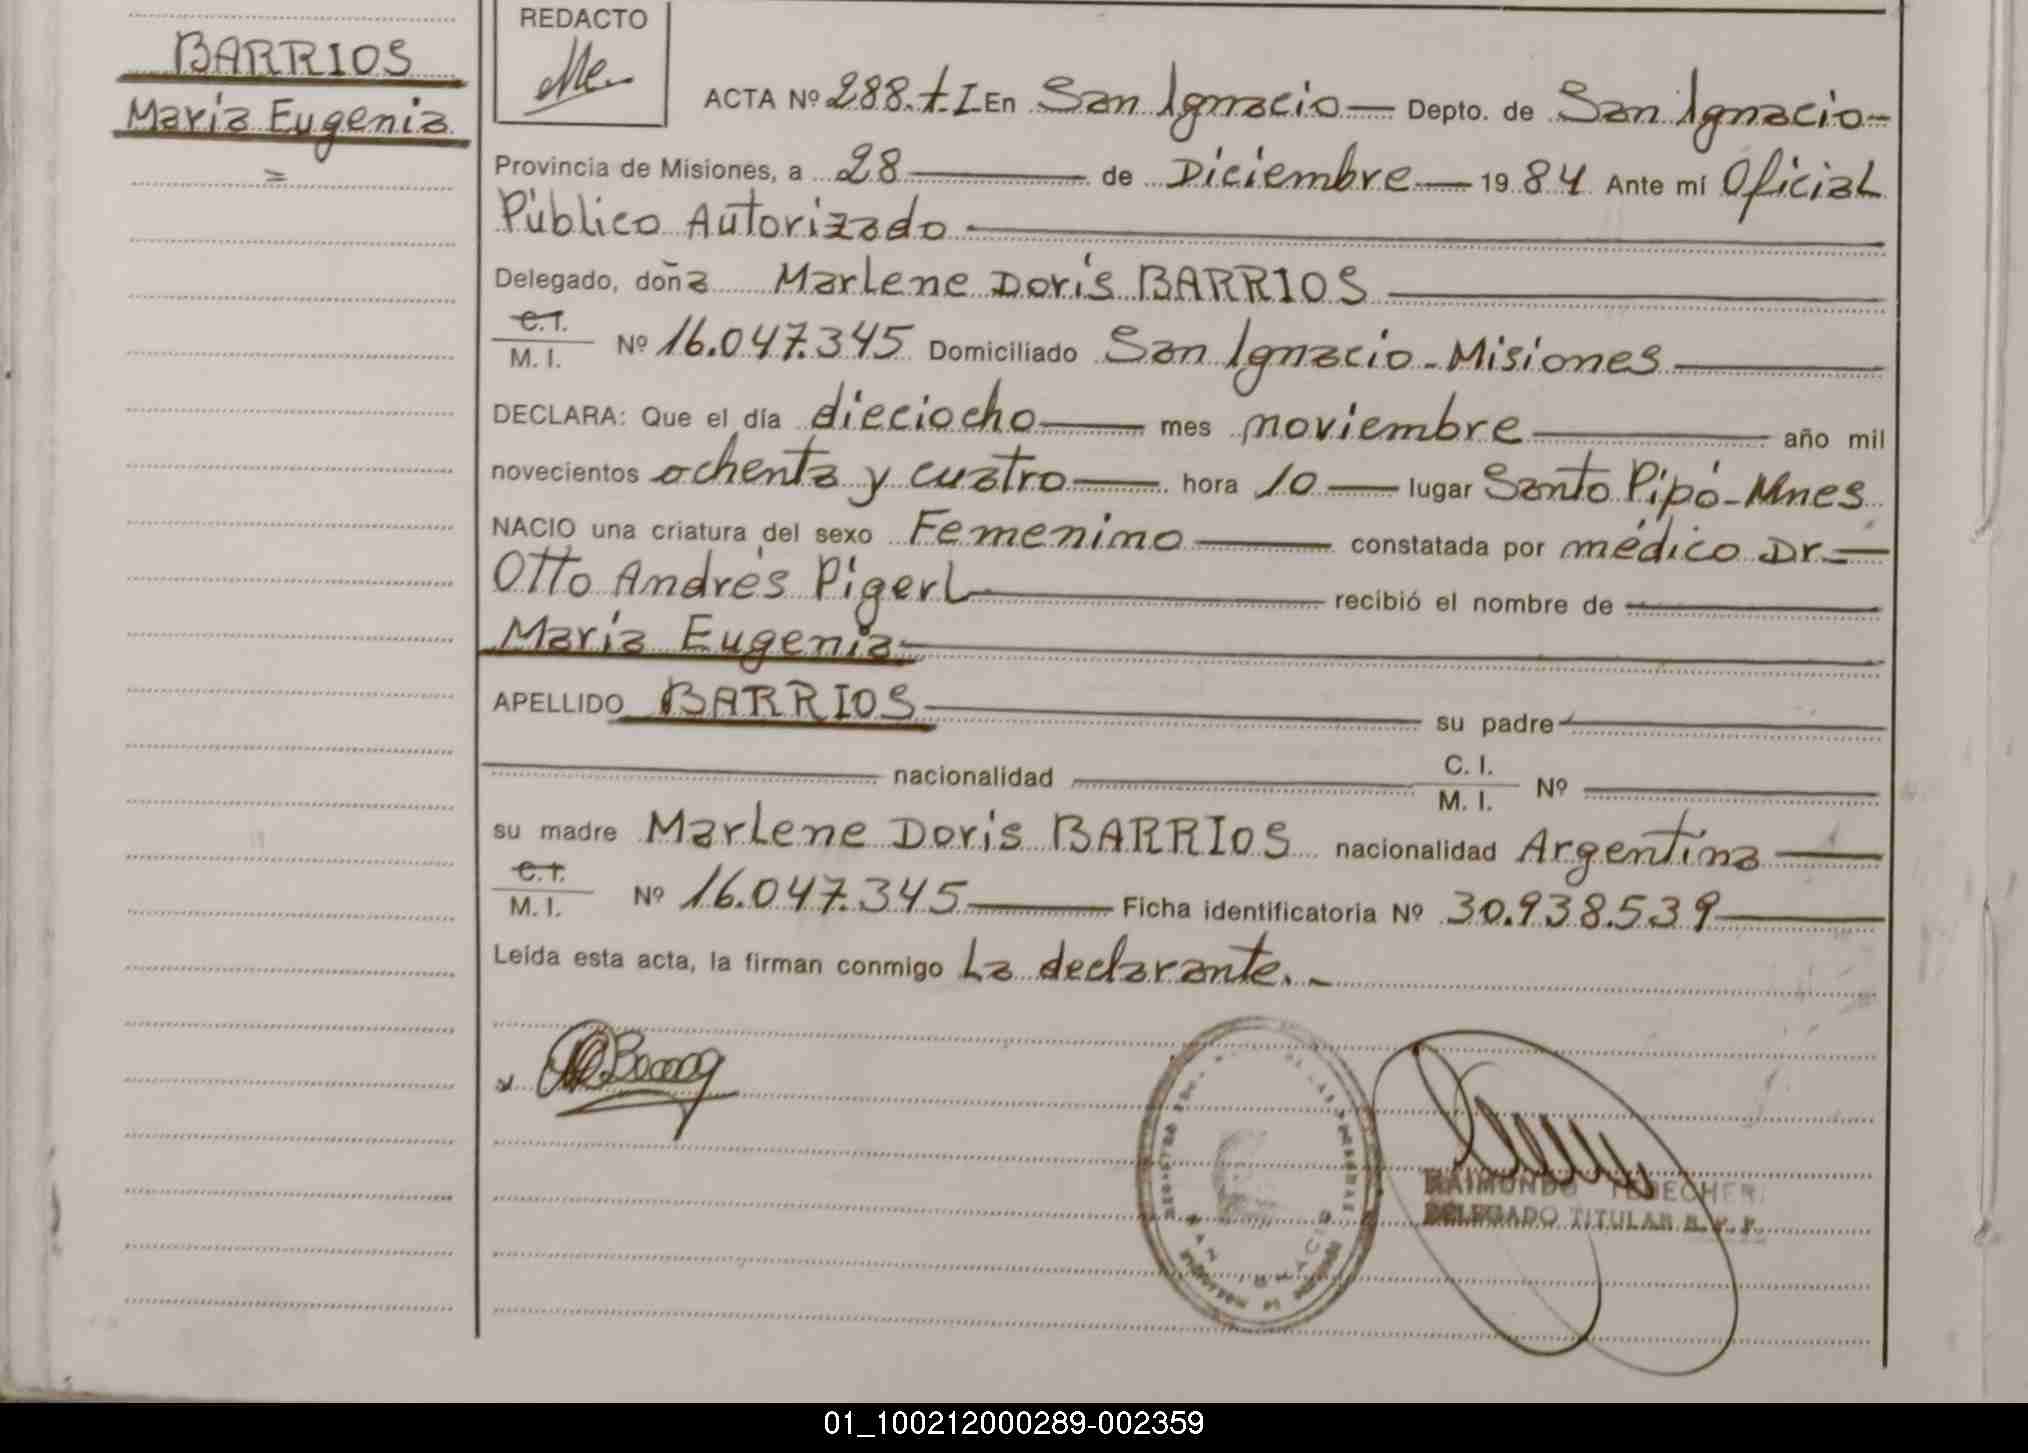 BARRIOS
María Eugenia
=
REDACTO
ACTA Nº 288. t. I En San Ignacio — Depto. de San Ignacio-
Provincia de Misiones, a 28 — de Diciembre — 1984 Ante mí Oficial
Público Autorizado
Delegado, doña Marlene Doris BARRIOS
C.I.
M. I. Nº 16.047.345 Domiciliado San Ignacio - Misiones
DECLARA: Que el día dieciocho — mes noviembre — año mil
novecientos ochenta y cuatro — hora 10 — lugar Santo Pipó - Mnes
NACIO una criatura del sexo Femenino — constatada por médico Dr. —
Otto Andrés Pigerl — recibió el nombre de —
María Eugenia
APELLIDO BARRIOS — su padre —
— nacionalidad — C. I.
M. I. Nº —
su madre Marlene Doris BARRIOS nacionalidad Argentina —
C.I.
M. I. Nº 16.047.345 — Ficha identificatoria Nº 30.938.539 —
Leída esta acta, la firman conmigo La declarante. -
RAIMUNDO
DELEGADO TITULAR R. P. P.
SAN IGNACIO
01_100212000289-002359